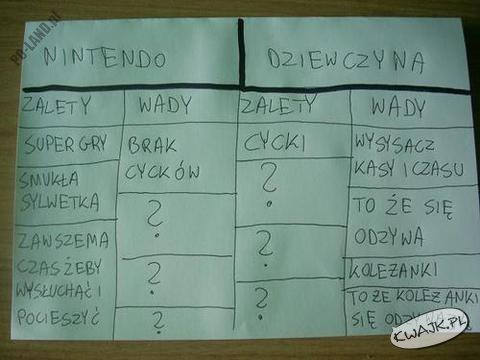 PC-LAND.pl
NINTENDO
DZIEWCZYNA
ZALETY
WADY
ZALETY
WADY
SUPER GRY
SMUKŁA
SYLWETKA
ZAWSZE MA
CZAS ŻEBY
WYSŁUCHAĆ I
POCIESZYĆ
BRAK
CYCKÓW
?
?
?
CYCKI
?
?
?
WYSYSACZ
KASY I CZASU
TO ŻE SIĘ
ODZYWA
KOLEŻANKI
TO ŻE KOLEŻANKI
SIĘ
KWAJK.PL